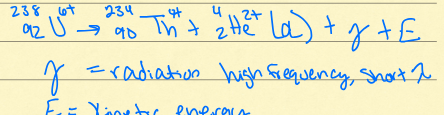 ²³⁸₉₂U⁶⁺ → ²³⁴₉₀Th⁴⁺ + ⁴₂He²⁺ (α) + γ + E
γ = radiation high frequency, short λ
E = kinetic energy